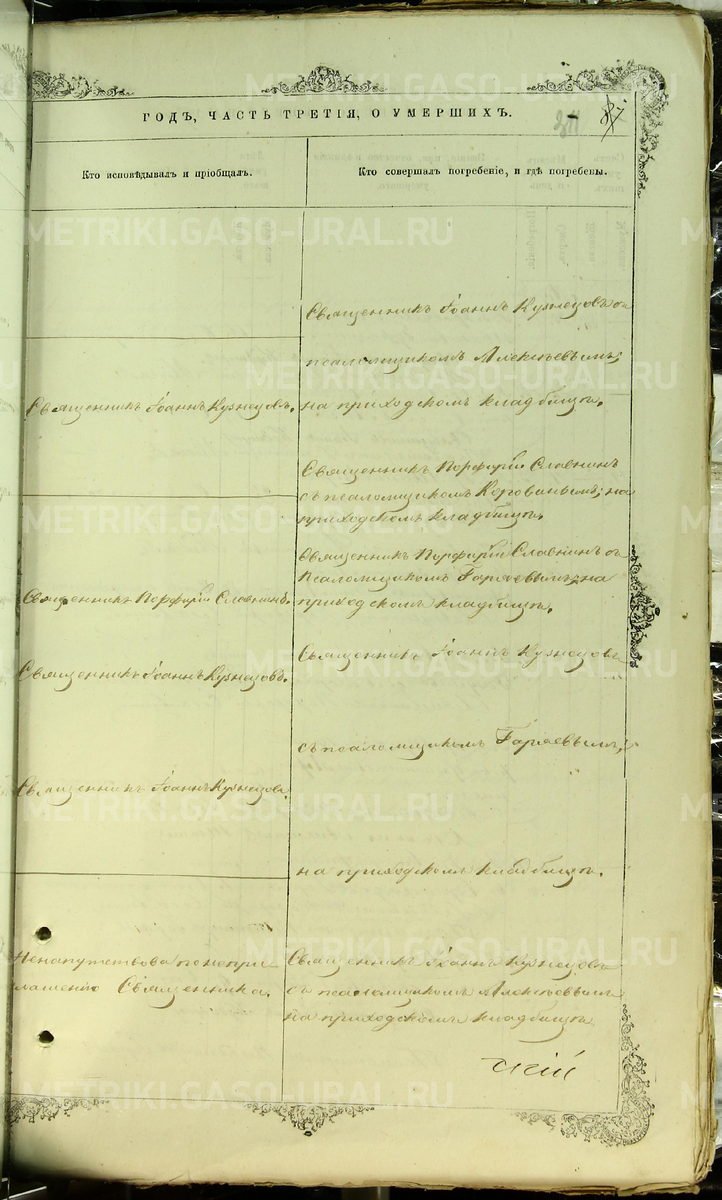 ГОДЪ, ЧАСТЬ ТРЕТІЯ, О УМЕРШИХЪ.
Кто исповѣдывалъ и пріобщалъ.
Кто совершалъ погребеніе, и гдѣ погребены.
Священникъ Іоаннъ Кузнецовъ съ
псаломщикомъ Алексѣевымъ;
на приходскомъ кладбищѣ.
Священникъ Іоаннъ Кузнецовъ.
Священникъ Порфирій Славнинъ
съ псаломщикомъ на
приходскомъ кладбищѣ.
Священникъ Порфирій Славнинъ съ
Псаломщикомъ Гаряевымъ, на
приходскомъ кладбищѣ.
Священникъ Порфирій Славнинъ.
Священникъ Іоаннъ Кузнецовъ
Священникъ Іоаннъ Кузнецовъ.
съ псаломщикомъ Гаряевымъ,
Священникъ Іоаннъ Кузнецовъ.
на приходскомъ кладбищѣ.
Ненапутствова по непри
глашенію Священника.
Священникъ Іоаннъ Кузнецовъ
съ псаломщикомъ Алексѣевымъ
на приходскомъ кладбищѣ.
скій
METRIKI.GASO-URAL.RU